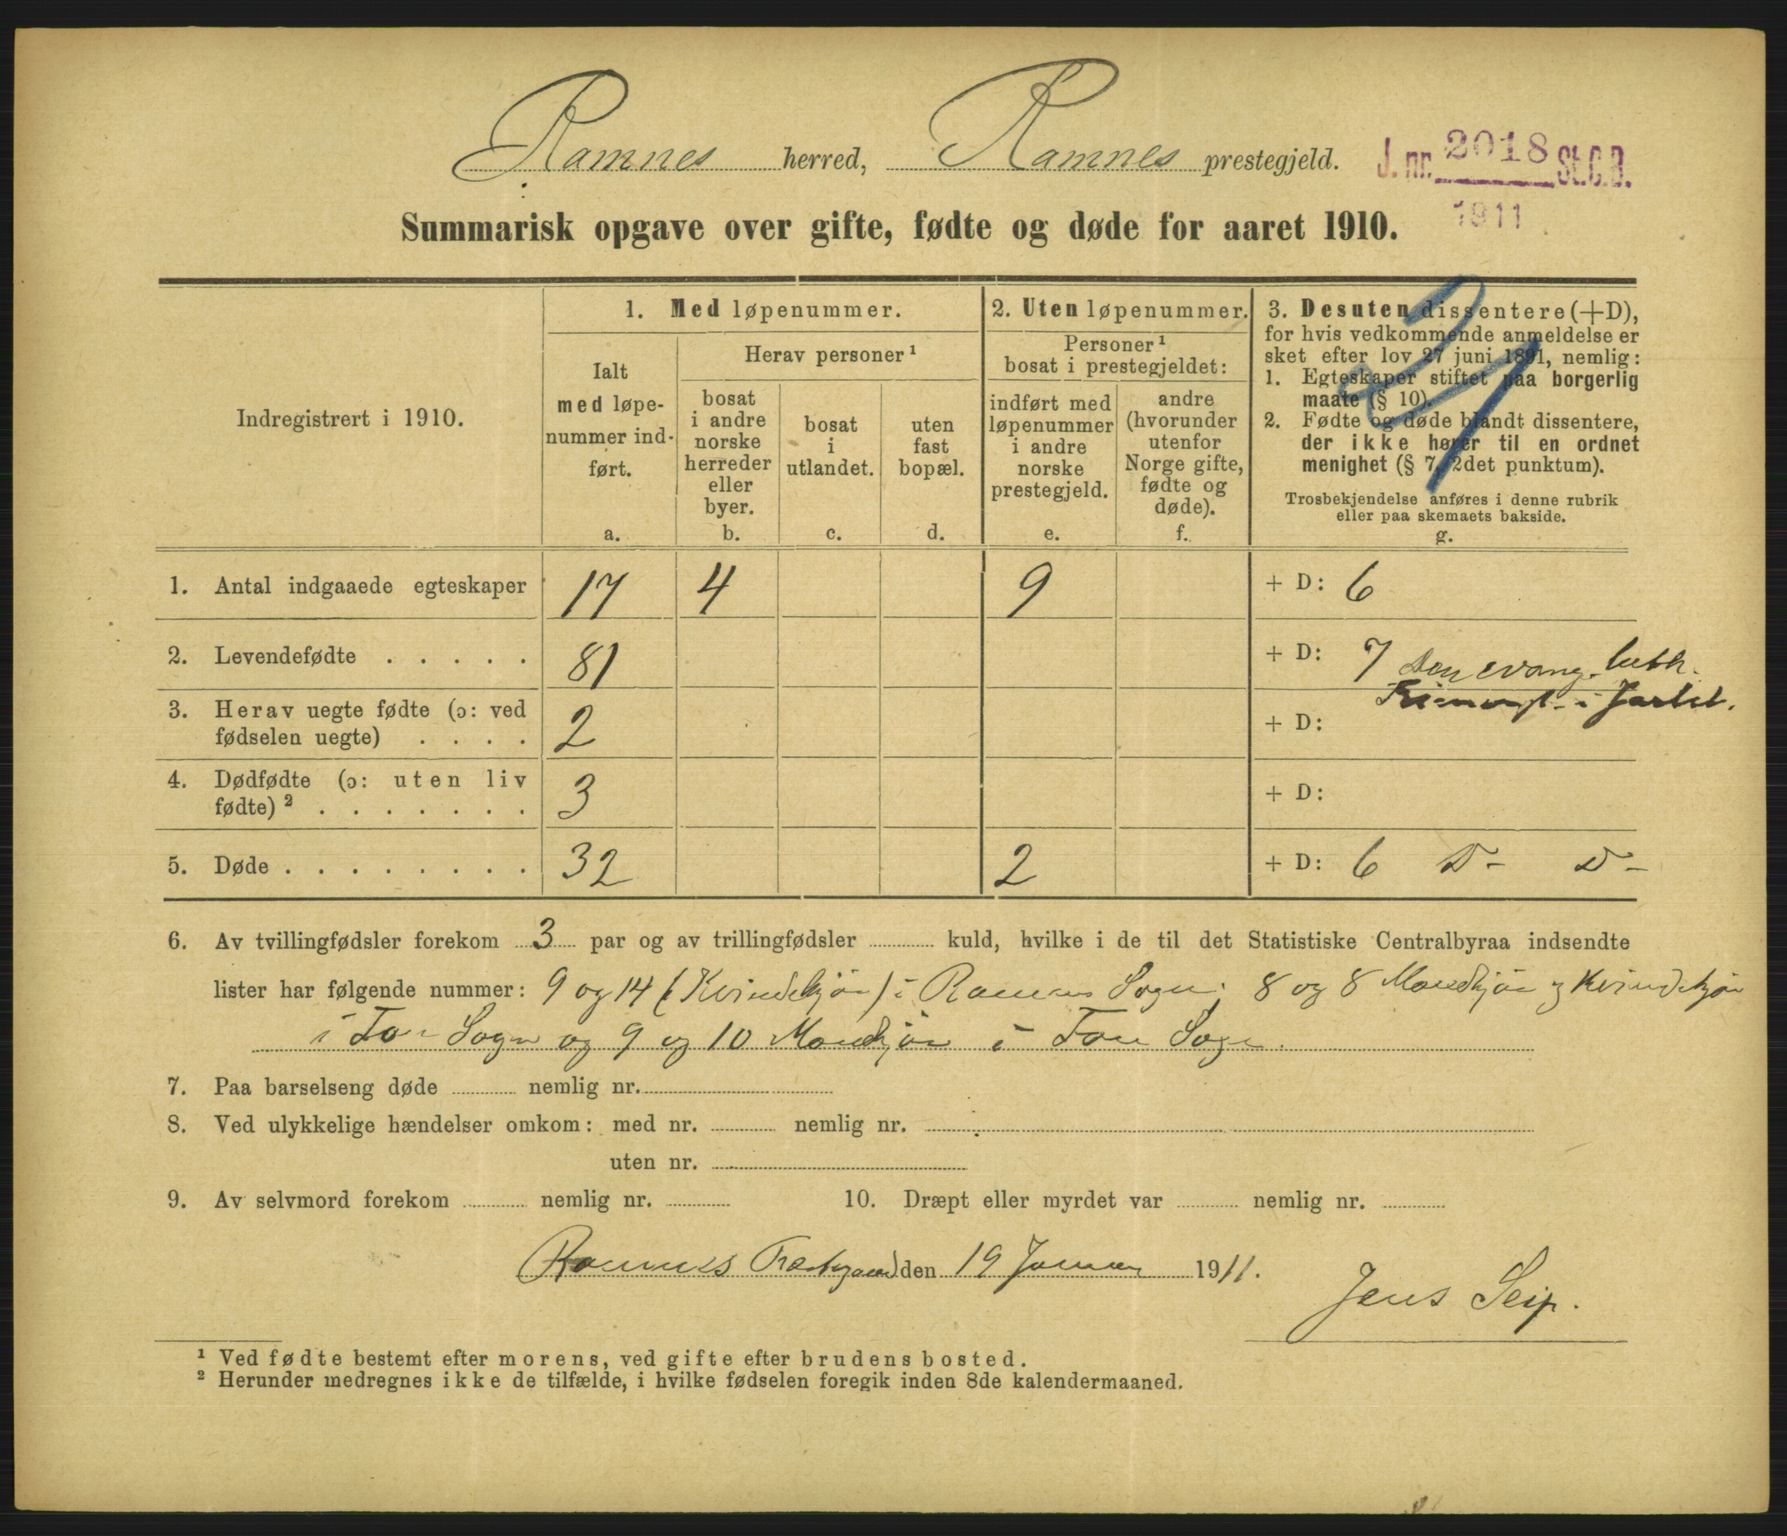 Ramnes herred, Ramnes prestegjeld.
J. nr. 2018 St.C.B.
1911
Summarisk opgave over gifte, fødte og døde for aaret 1910.
Indregistrert i 1910.
1. Med løpenummer.
Ialt
med løpe-
nummer ind-
ført.
a.
Herav personer ¹
bosat
i andre
norske
herreder
eller
byer.
b.
bosat
i
utlandet.
c.
uten
fast
bopæl.
d.
2. Uten løpenummer.
Personer ¹
bosat i prestegjeldet:
indført med
løpenummer
i andre
norske
prestegjeld.
e.
andre
(hvorunder
utenfor
Norge gifte,
fødte og
døde).
f.
3. Desuten dissentere (+D),
for hvis vedkommende anmeldelse er
sket efter lov 27 juni 1891, nemlig:
1. Egteskaper stiftet paa borgerlig
maate (§ 10).
2. Fødte og døde blandt dissentere,
der ikke hører til en ordnet
menighet (§ 7, 2det punktum).
Trosbekjendelse anføres i denne rubrik
eller paa skemaets bakside.
g.
1. Antal indgaaede egteskaper 17 4 9 + D: 6
2. Levendefødte . . . . . 81 + D: 7 den evang. luth.
Frimengh. i Jarlsb.
3. Herav uegte fødte (ɔ: ved
fødselen uegte) . . . . 2 + D:
4. Dødfødte (ɔ: uten liv
fødte) ² . . . . . . . 3 + D:
5. Døde . . . . . . . . 32 2 + D: 6 D- D-
6. Av tvillingfødsler forekom 3 par og av trillingfødsler ........ kuld, hvilke i de til det Statistiske Centralbyraa indsendte
lister har følgende nummer: 9 og 14 (Kvindekjøn) i Ramnes Sogn; 8 og 8 Mandkjøn og Kvindekjøn
i Fon Sogn og 9 og 10 Mandkjøn i Fon Sogn.
7. Paa barselseng døde ........ nemlig nr. ........
8. Ved ulykkelige hændelser omkom: med nr. ........ nemlig nr. ........
uten nr. ........
9. Av selvmord forekom ........ nemlig nr. ........ 10. Dræpt eller myrdet var ........ nemlig nr. ........
Ramnes Præstegaard den 19 Januar 1911.
Jens Seip.
¹ Ved fødte bestemt efter morens, ved gifte efter brudens bosted.
² Herunder medregnes ikke de tilfælde, i hvilke fødselen foregik inden 8de kalendermaaned.